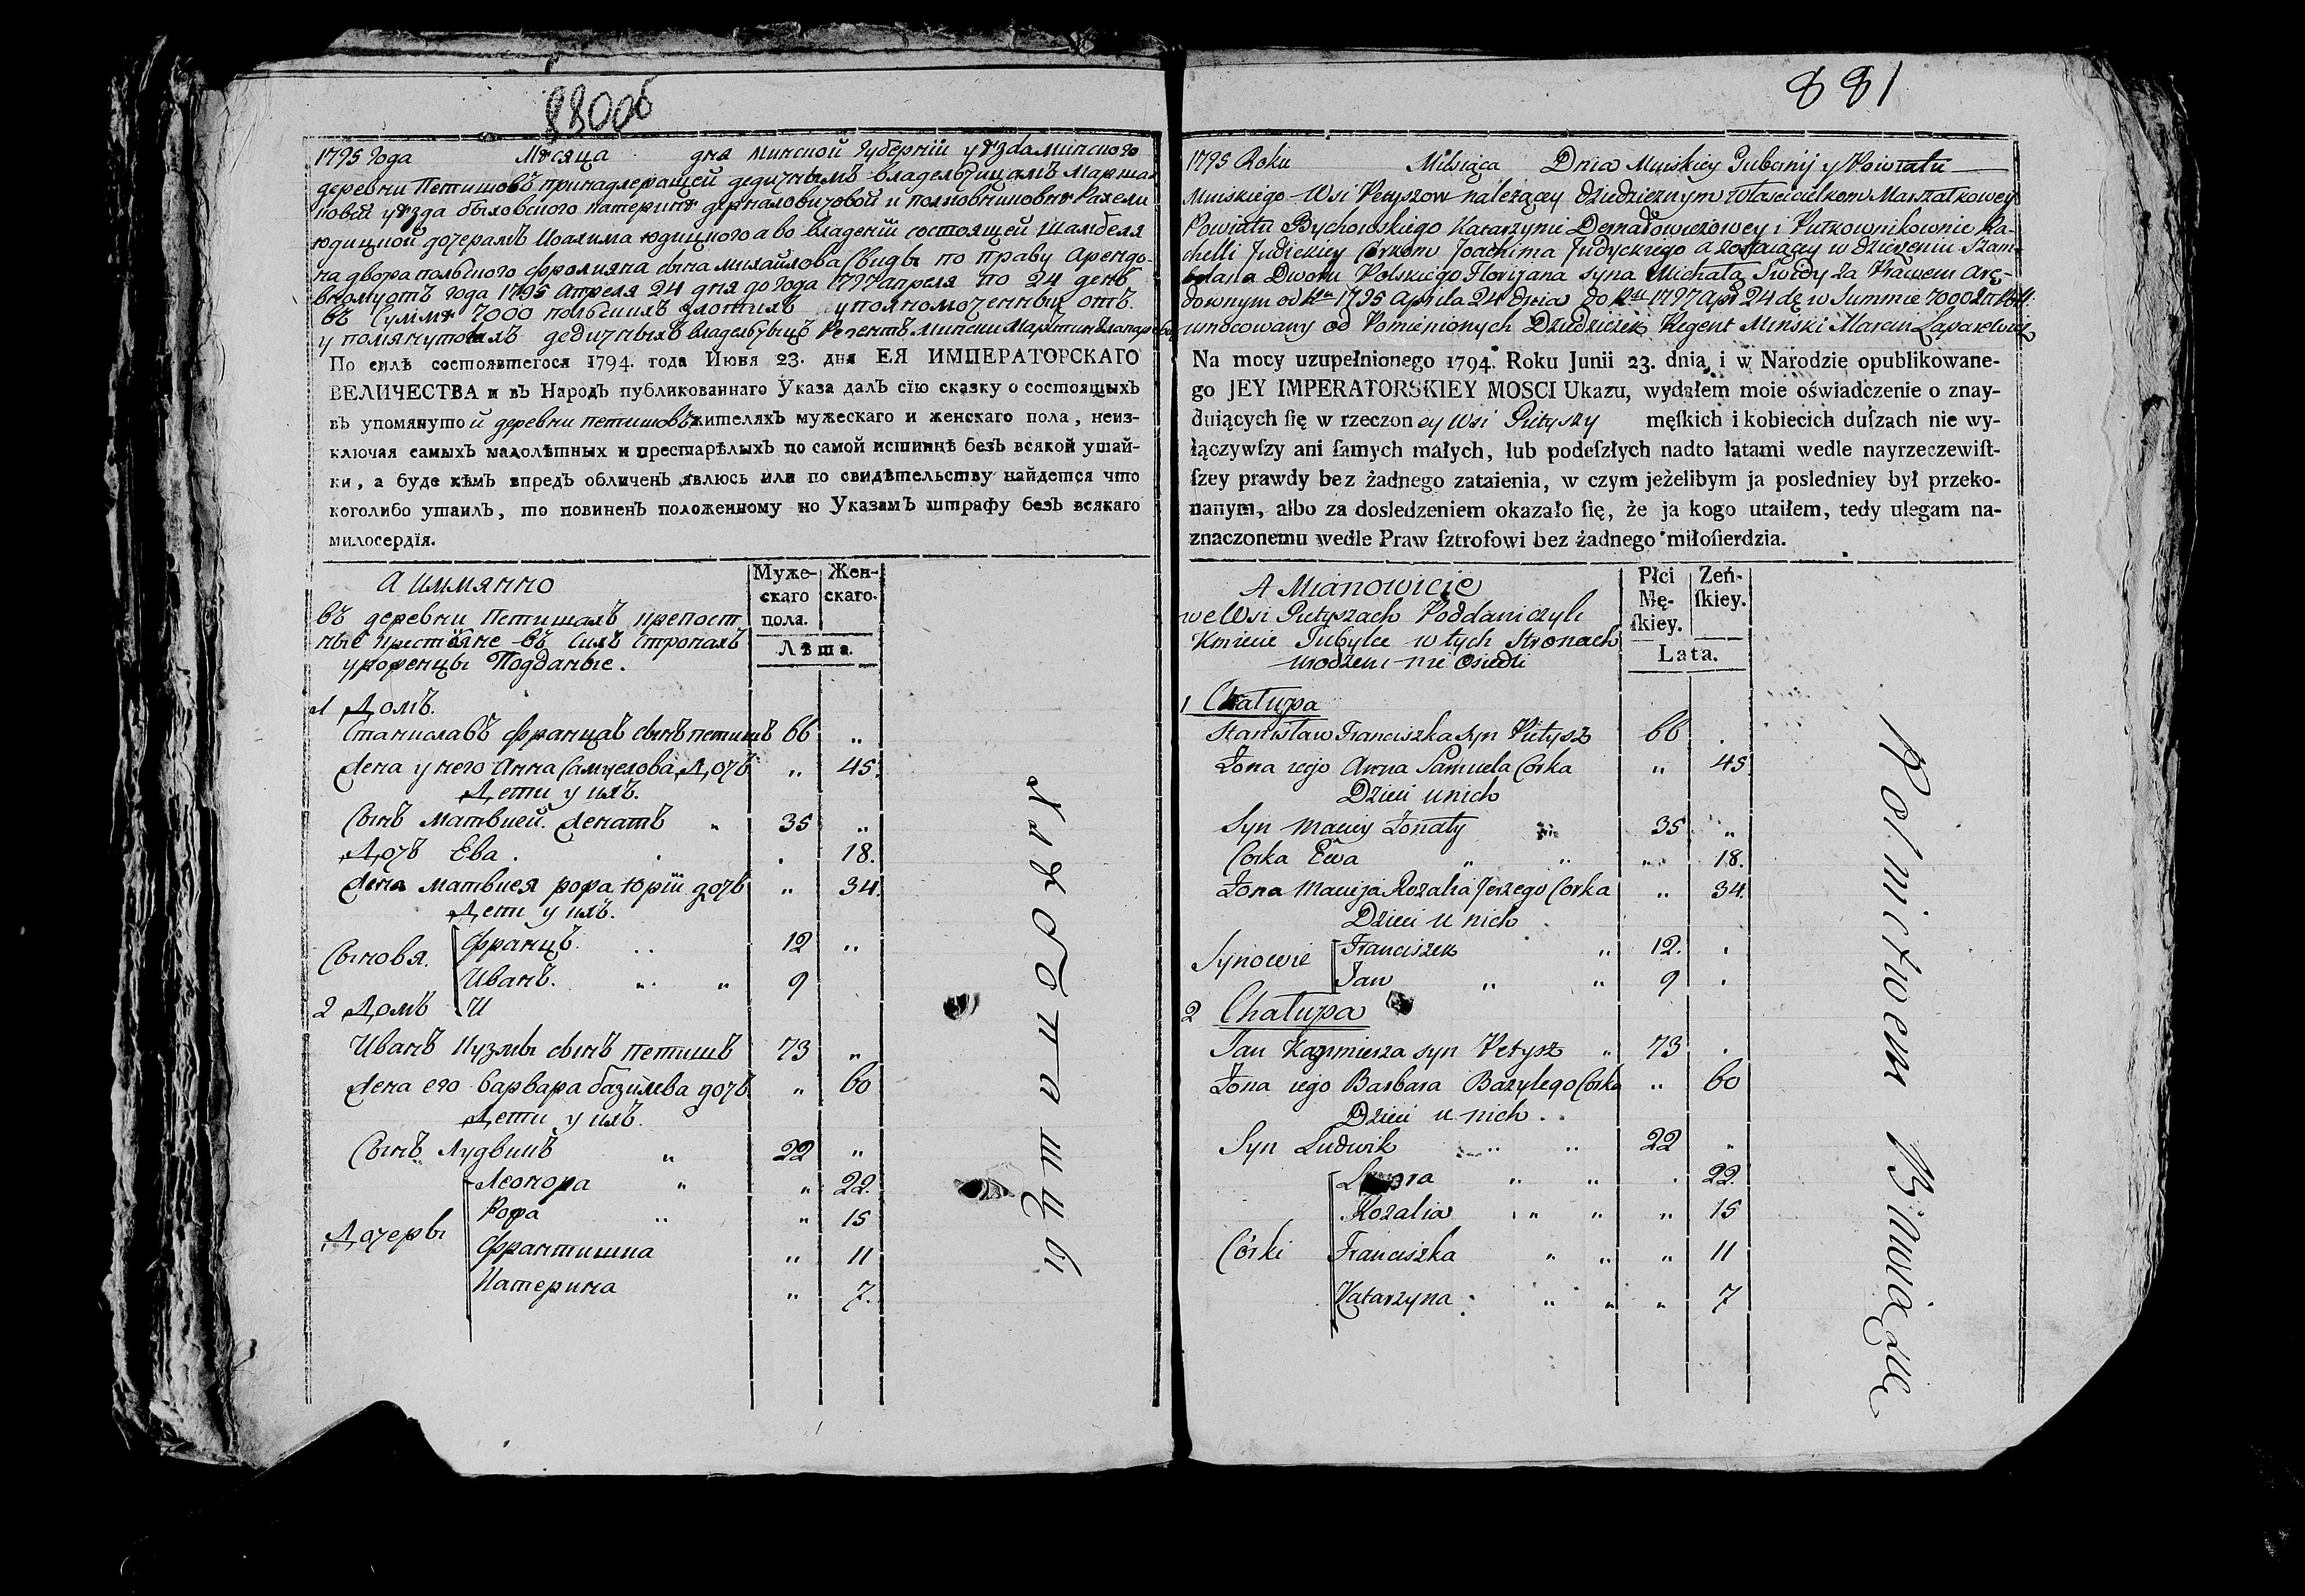 880об
1795 года Мѣсяца дня минской губерніи уѣзда минского
деревни Петишовъ принадлежащей дедичнымъ владельчицамъ Маршал
ковой уѣзда быховского катеринѣ дерналовичовой и полковниковнѣ Рахели
юдицкой дочерамъ Иоахима юдицкого а во владеніи состоящей шамбеля
на двора польского флорияна сына михайлова Свиды по праву Арендо
вному отъ года 1795 апреля 24 дня до года 1797 апреля по 24 день
въ Суммѣ 7000 польскихъ злотихъ уполномоченный отъ
упомянутохъ дедичныхъ владельчицъ Регентъ мински Мартинъ
По силѣ состоявшегося 1794. года Июня 23. дня ЕЯ ИМПЕРАТОРСКАГО
ВЕЛИЧЕСТВА и въ Народъ публикованнаго Указа далъ сію сказку о состоящыхъ
въ упомянутой деревни петишовъ жителяхъ мужескаго и женскаго пола, неиз-
ключая самыхъ малолѣтных и престарѣлыхъ по самой истиннѣ безъ всякой утай-
ки, а буде кѣмъ впредъ обличенъ явлюсь или по свидѣтельству найдется что
коголибо утаилъ, то повиненъ положенному по Указамъ штрафу безъ всякаго
милосердія.
А иммянно
Муже- Жен-
скаго скаго.
пола.
Лѣта.
въ деревни Петишахъ крепост
ные крестияне въ сихъ сторонахъ
уроженцы Подданые.
1 Домъ.
Станиславъ францавъ сынъ петишъ 66 „
жена у него Анна Самуелова Дочъ „ 45.
Дети у ихъ.
Сынъ матвией женатъ „ 35 „
Дочъ Ева . . 18.
жена матвиея рожа юрій дочъ „ 34.
Дети у ихъ.
Сыновя. Францъ. 12 „
Иванъ. „ „ 9
2 Домъ И
Иванъ Кузмы сынъ петишъ 73 „
жена его барвара базылева дочъ „ 60
Дети у ихъ.
Сынъ Лудвикъ „ 22 „
Леонора „ „ 22.
Рожа „ „ 15
Дочеры Франтишка „ 11
Катерина „ 7.
881
1795 Roku Miesiąca Dnia Minskiey Gubernij y Powiatu
Minskiego Wsi Petyszow należącey dziedzicznym Włascicielkom Marszałkowey
Powiatu Bychowskiego Katarzynie Dernałowiczowey i Pułkownikownie Ra-
chelli Judickiey Corkom Joachima Judyckiego a zostaiącey w dzierzeniu Szam-
belana Dworu Polskiego Floryana syna Michała Swidy za Prawem Arę-
downym od Rku 1795 Aprila 24 dnia do Rku 1797 Apr 24 dę w Summie 7000 Zł Poll:
umocowany od Pomienionych Dziedziczek Regent Minski Marcin Łaparewicz
Na mocy uzupełnionego 1794. Roku Junii 23. dnia, i w Narodzie opublikowane-
go JEY IMPERATORSKIEY MOSCI Ukazu, wydałem moie oświadczenie o znay-
duiących ſię w rzeczoney Wsi Pietyszy męſkich i kobiecich duſzach nie wy-
łączywſzy ani ſamych małych, lub podeſzłych nadto latami wedle nayrzeczewiſt-
ſzey prawdy bez żadnego zataienia, w czym jeżelibym ja posledniey był przeko-
nanym, albo za dosledzeniem okazało ſię, że ja kogo utaiłem, tedy ulegam na-
znaczonemu wedle Praw ſztrofowi bez żadnego miłoſierdzia.
A Mianowicie
Płci Zeń-
Mę- ſkiey.
ſkiey.
Lata.
we Wsi Pietyszach Poddani czyli
Kmiecie Tubylce w tych Stronach
urodzeni nie Osiedli
1 Chałupa
Stanisław Franciszka syn Pietysz 66 .
Żona iego Anna Samuela Corka „ 45
Dzieci u nich
Syn Maciey Żonaty 35 „
Corka Ewa „ „ „ 18.
Żona Macieja Rozalia Jerzego Corka „ 34.
Dzieci u nich
Synowie Franciszek „ 12. .
Jan „ „ 9 .
2 Chałupa
Jan Kazimierza syn Petysz „ 73 .
Żona iego Barbara Bazylego Corka „ 60
Dzieci u nich . .
Syn Ludwik „ „ 22 „
„ „ . 22.
Rozalia „ „ „ 15
Córki Franciszka „ „ „ 11
Katarzyna „ „ „ 7